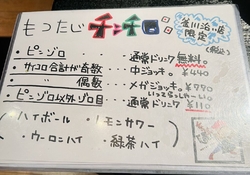 もつたじ チンチロ 荒川沖店限定
(税込)
・ピンゾロ ・・・通常ドリンク無料。
・サイコロ合計が奇数・・・中ジョッキ。¥440
・ 〃 偶数・・・メガジョッキ。¥770
いってらっしゃ〜い
・ピンゾロ以外ゾロ目・・・通常ドリンク ¥110
ハイボール レモンサワー
ウーロンハイ 緑茶ハイ